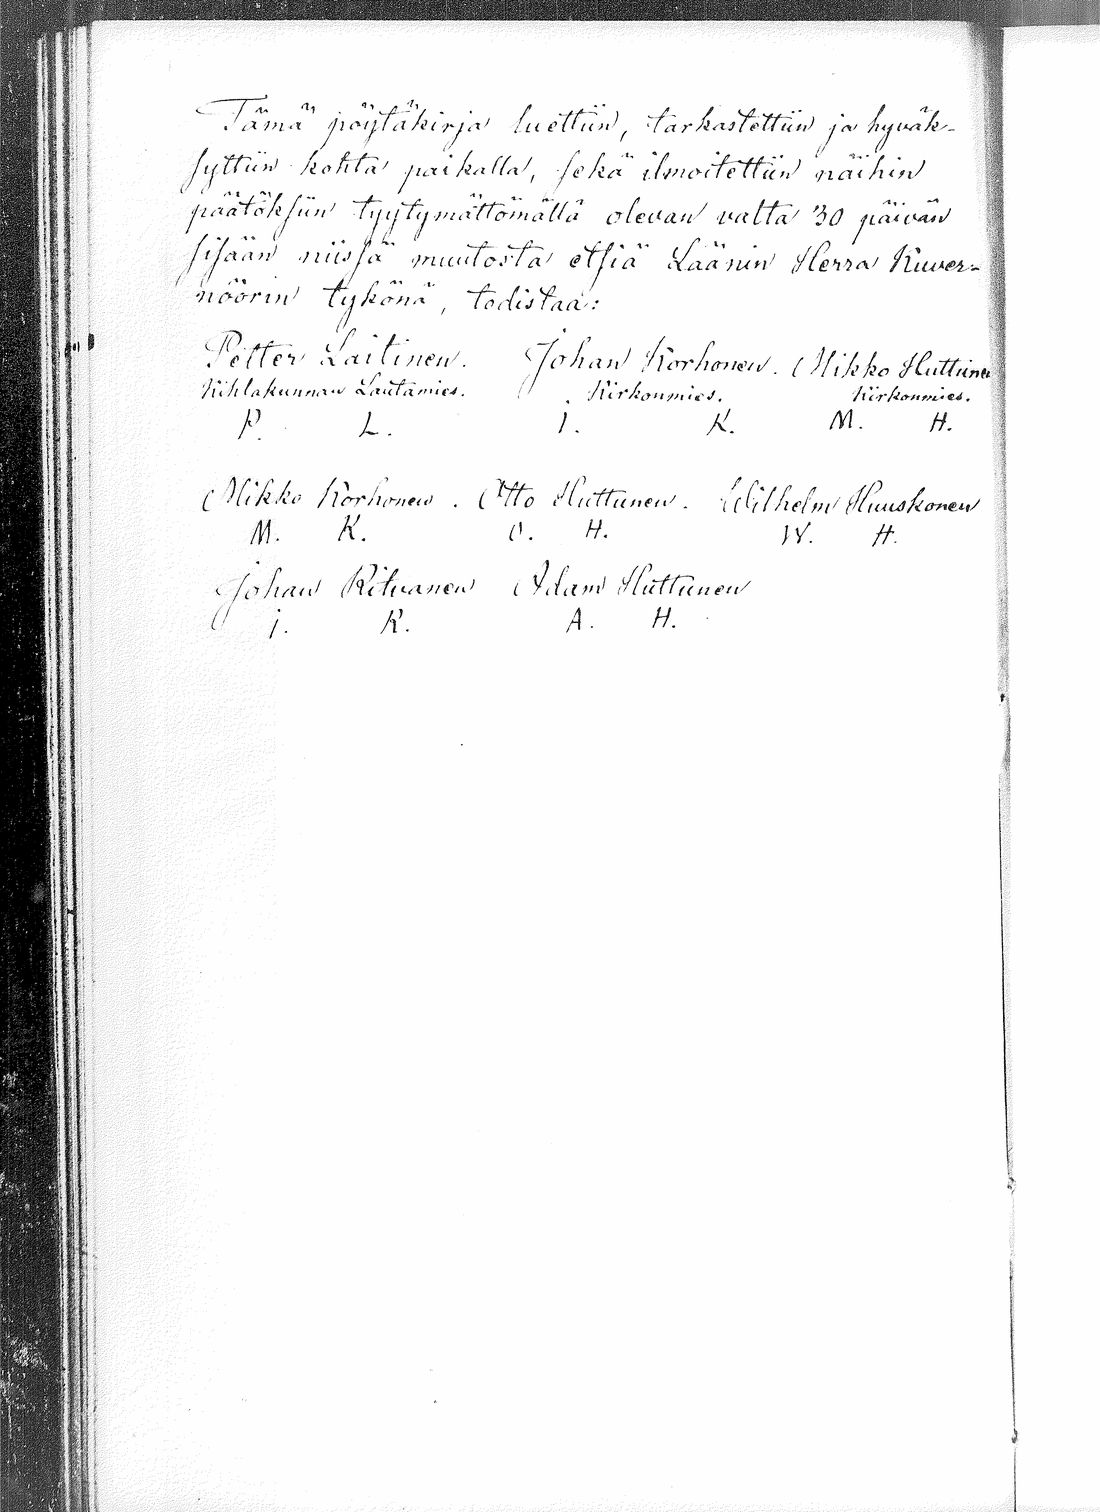 Tämä pöytäkirja luettiin, tarkastettiin ja hyväk-
syttiin kohta paikalla, sekä ilmoitettiin näihin
päätöksiin tyytymättömällä olevan valta 30 päivän
sisään niissä muutosta etsiä Läänin Herra Kuver-
nöörin tykönä, todistaa:
Petter Laitinen. Johan Korhonen. Mikko Huttunen
Kihlakunnan Lautamies. Kirkonmies. Kirkonmies.
P. L. I. K. M. H.
Mikko Korhonen. Otto Huttunen. Wilhelm Huuskonen
M. K. O. H. W. H.
Johan Ritvanen Adam Huttunen
J. R. A. H.